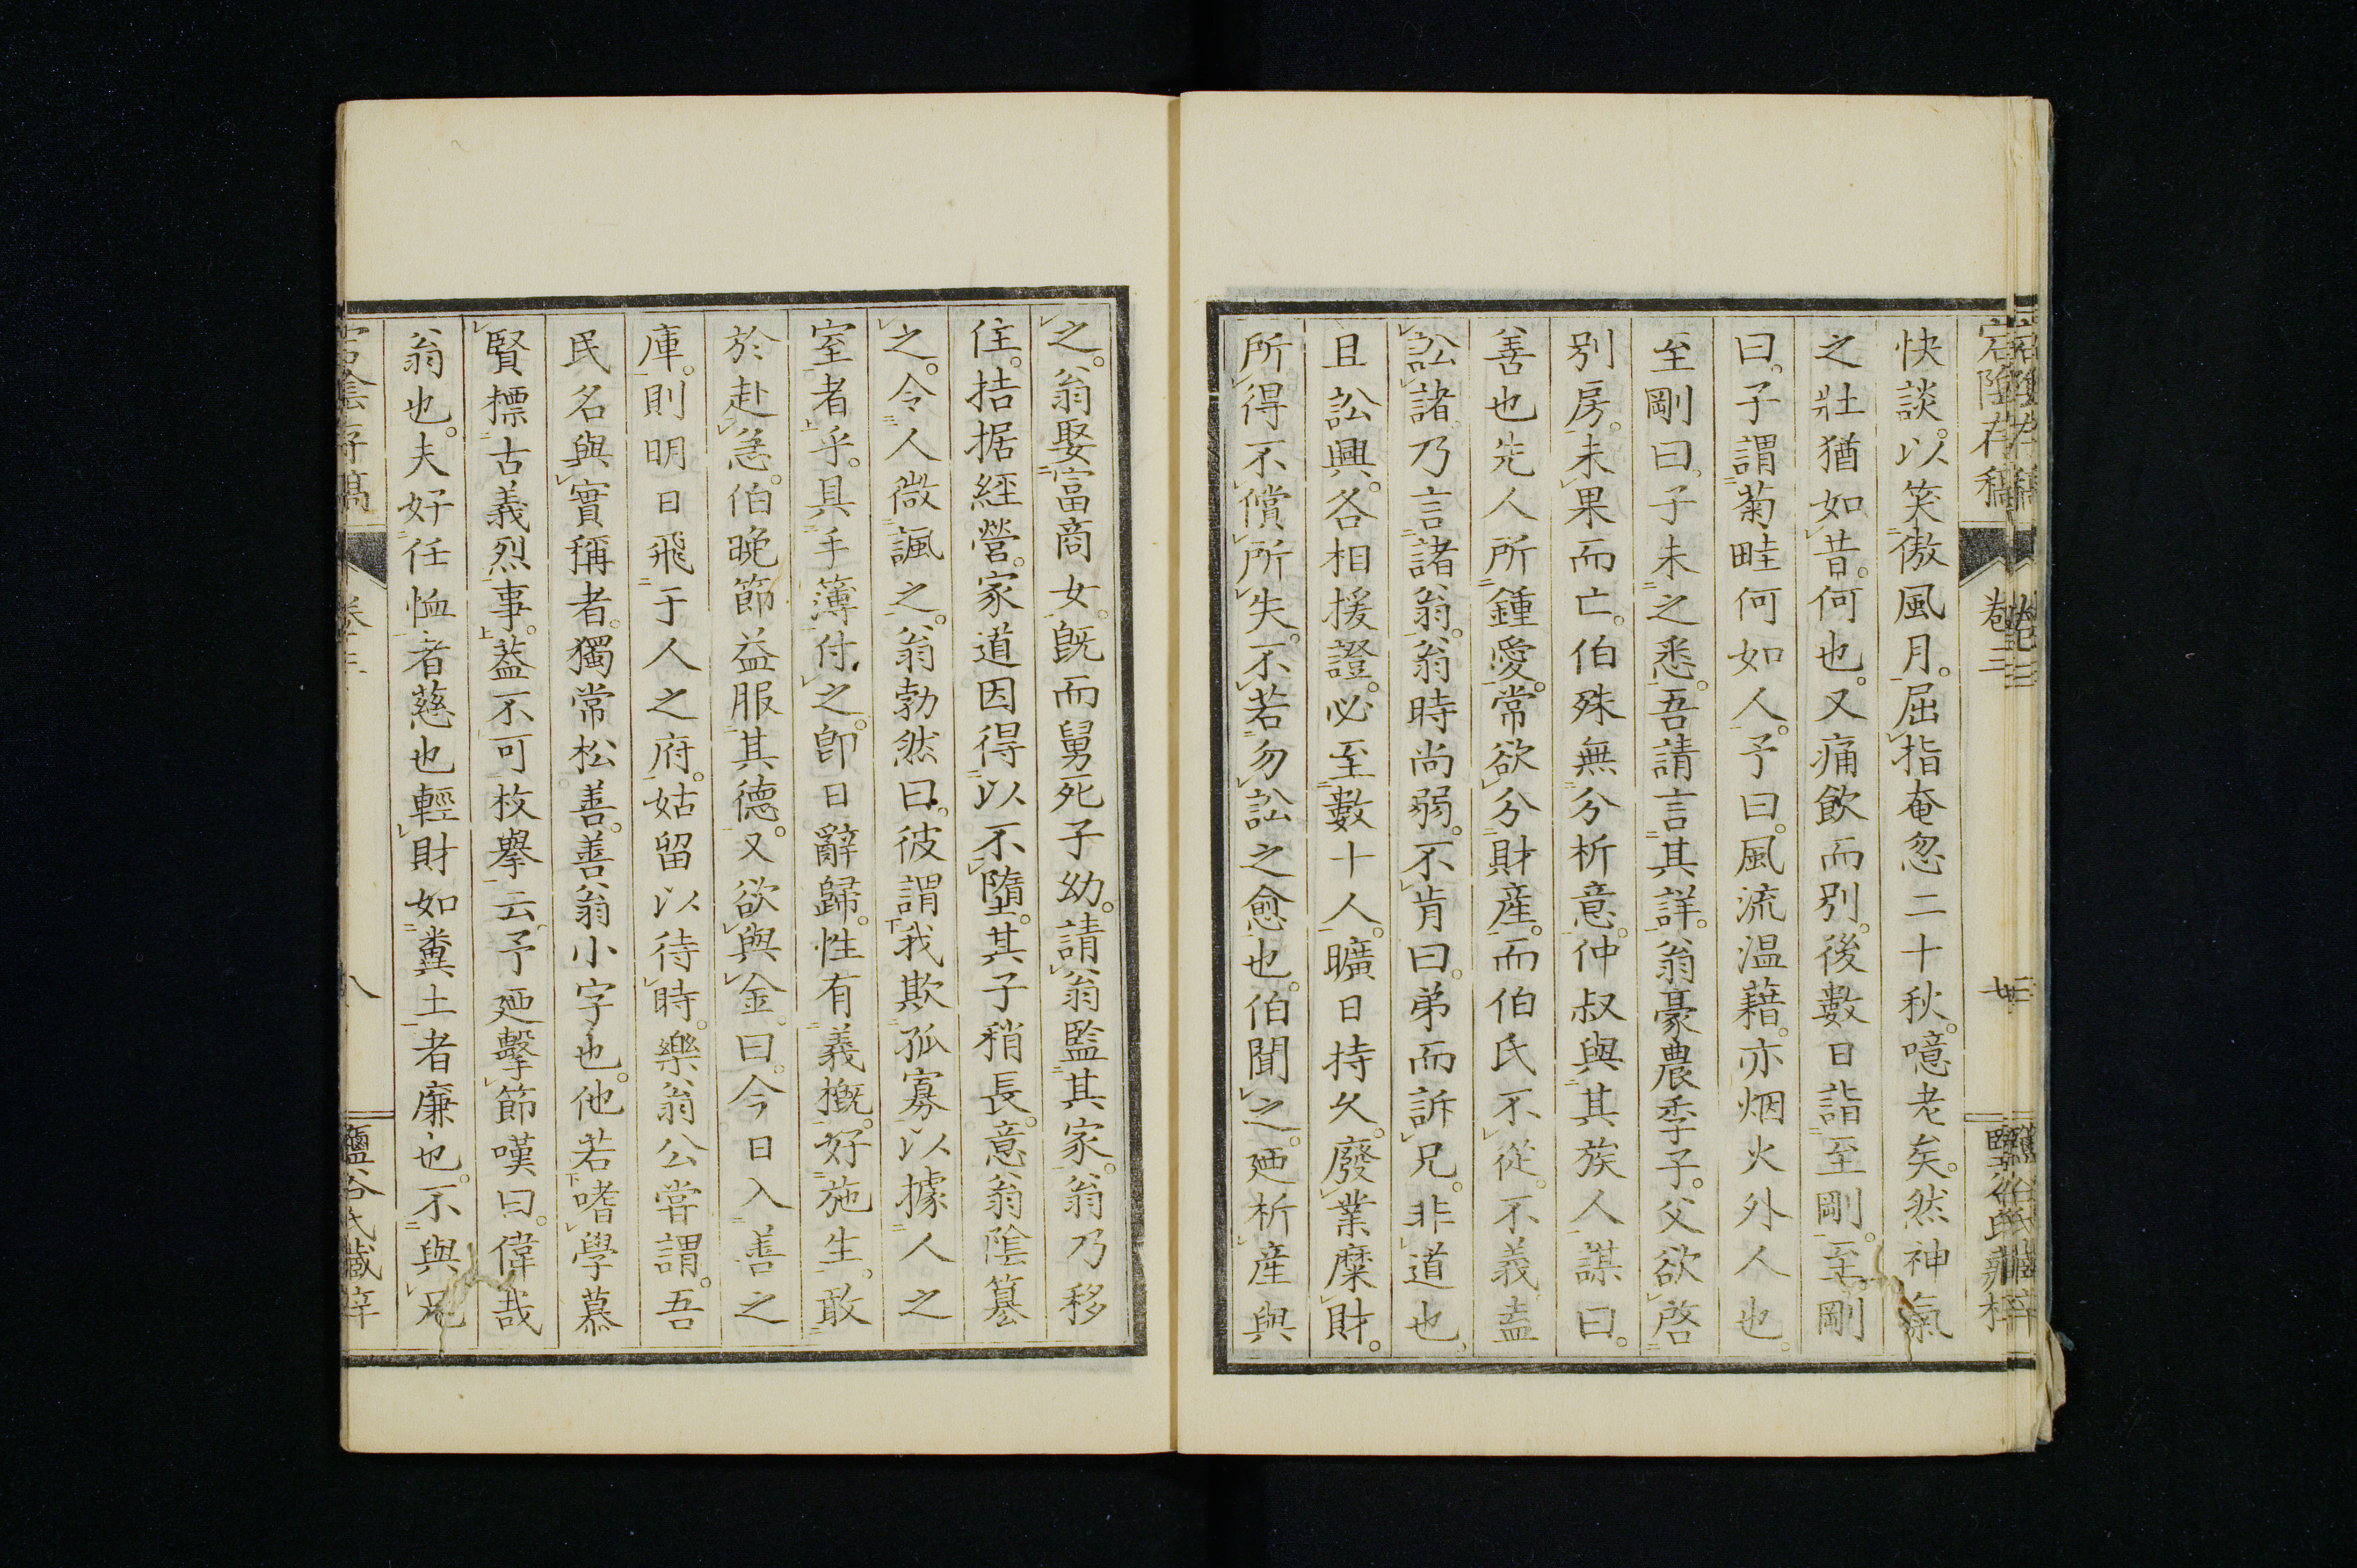 快談。以笑傲風月。屈指奄忽二十秋。噫老矣。然神氣
之壯猶如昔。何也。又痛飲而別。後數日詣至剛。至剛
曰。子謂菊畦何如人。予曰。風流温藉。亦烟火外人也。
至剛曰。子未之悉。吾請言其詳。翁豪農季子。父欲啓
別房。未果而亡。伯殊無分析意。仲叔與其族人謀曰。
善也先人所鍾愛。常欲分財産。而伯氏不從。不義盍
訟諸。乃言諸翁。翁時尚弱。不肯曰。弟而訴兄。非道也、
且訟興。各相援證。必至數十人。曠日持久。廢業糜財。
所得不償所失。不若勿訟之愈也。伯聞之。廼析産與
之。翁娶富商女。既而舅死子幼。請翁監其家。翁乃移
住。拮据經營。家道因得以不墮。其子稍長。意翁陰簒
之。令人微諷之。翁勃然曰。彼謂我欺孤寡以據人之
室者乎。具手簿付之。卽日辭歸。性有義概。好施生。敢
於赴急。伯晩節益服其德。又欲與金。曰。今日入善之
庫。則明日飛于人之府。姑留以待時。樂翁公嘗謂。吾
民名與實稱者。獨常松善。善翁小字也。他若嗜學慕
賢標古義烈事。葢不可枚擧云。予廼擊節嘆曰。偉哉
翁也。夫好任恤者慈也輕財如糞土者廉也。不與兄
卷三
八